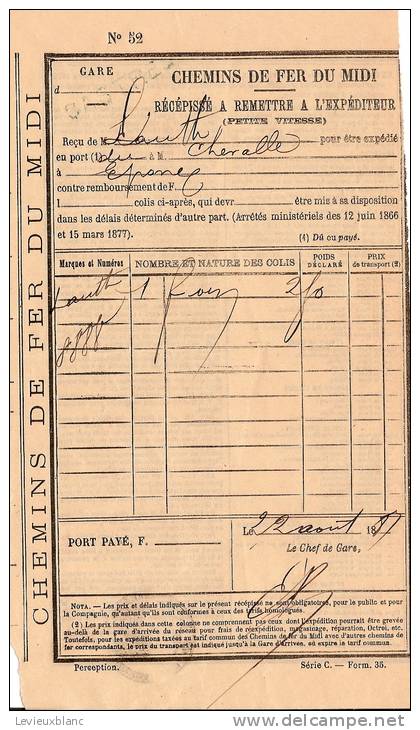 No 52
CHEMINS DE FER DU MIDI
GARE
d
CHEMINS DE FER DU MIDI
RÉCÉPISSÉ A REMETTRE A L'EXPÉDITEUR
(PETITE VITESSE)
Reçu de M Lauth pour être expédié
en port (1) du à M. Chevalle
à Epone
contre remboursement de F.
1 colis ci-après, qui devr être mis à sa disposition
dans les délais déterminés d'autre part. (Arrêtés ministériels des 12 juin 1866
et 15 mars 1877). (1) Dû ou payé.
Marques et Numéros NOMBRE ET NATURE DES COLIS POIDS DÉCLARÉ PRIX de transport (2)
Lauth 1
PORT PAYÉ, F.
Le 22 août 1887
Le Chef de Gare,
NOTA. — Les prix et délais indiqués sur le présent récépissé ne sont obligatoires, pour le public et pour
la Compagnie, qu'autant qu'ils sont conformes à ceux des tarifs homologués.
(2) Les prix indiqués dans cette colonne ne comprennent pas ceux dont l'expédition pourrait être grevée
au-delà de la gare d'arrivée du réseau pour frais de réexpédition, magasinage, réparation, Octroi, etc.
Toutefois, pour les expéditions taxées au tarif commun des Chemins de fer du Midi avec d'autres chemins de
fer correspondants, le prix du transport est indiqué jusqu'à la Gare d'arrivée, en exédant au tarif commun.
Perception. Série C. — Form. 35.
Levieuxblanc
delcampe.net